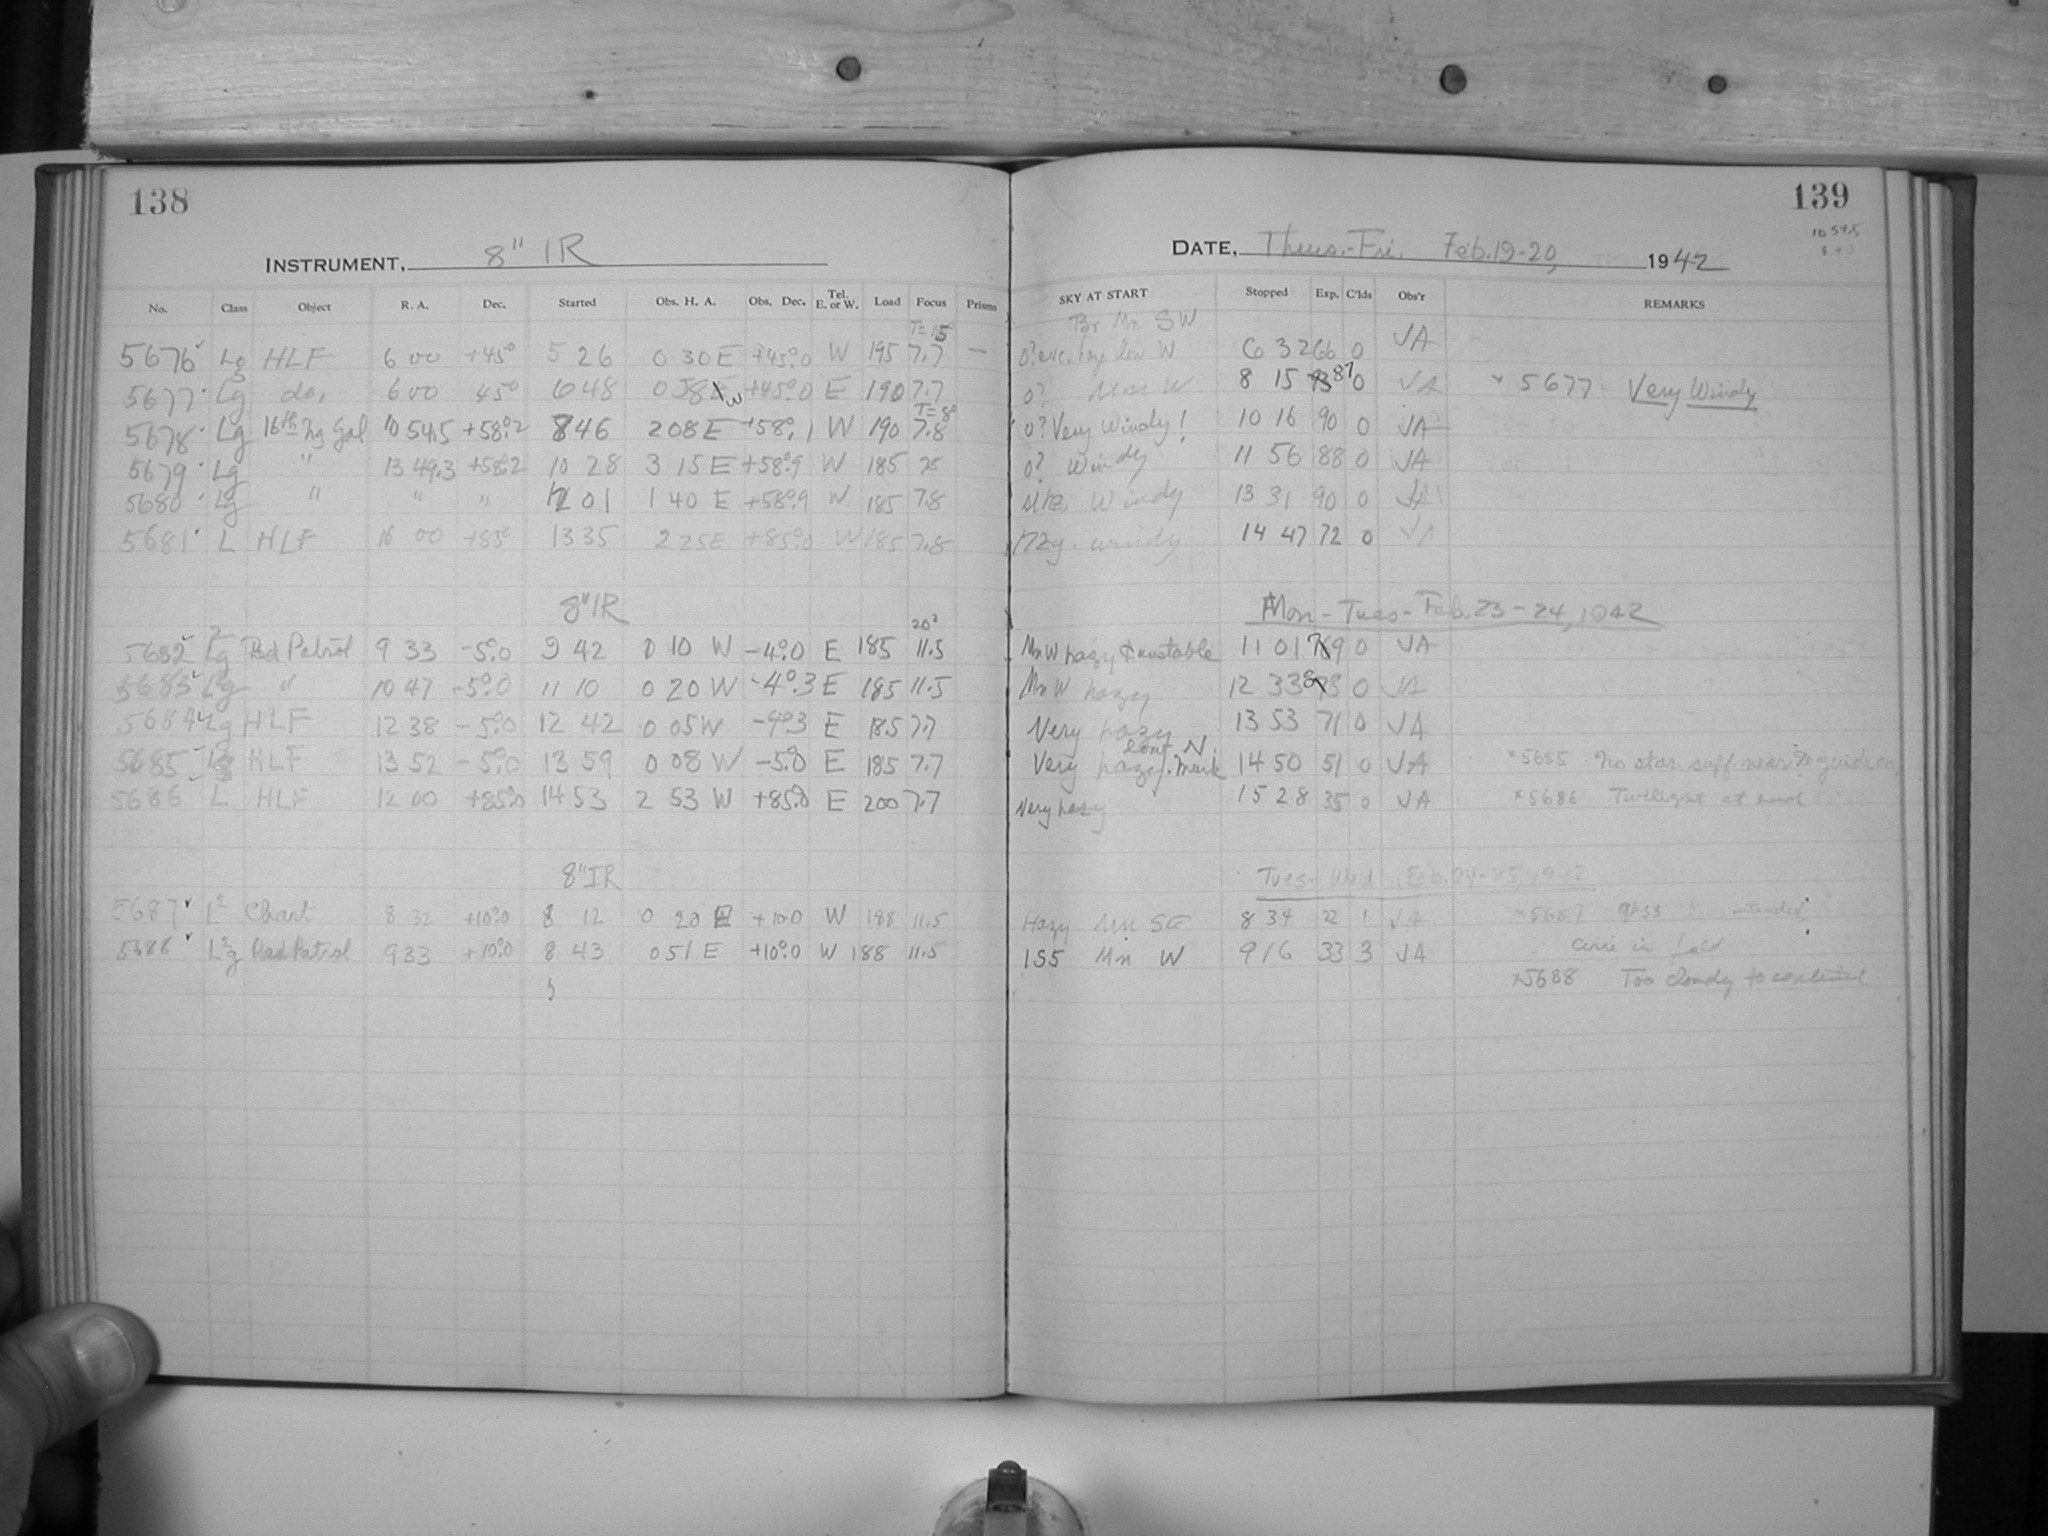 138
139
10 54.5
INSTRUMENT, 8" IR
DATE, Thurs.-Fri. Feb. 19-20, 1942
No. Class Object R. A. Dec. Started Obs. H. A. Obs. Dec. Tel. E. or W. Load Focus Prisms SKY AT START Stopped Exp. C'lds Obs'r REMARKS
T=15° Br Mn SW
5676 Lg HLF 6 00 +45° 5 26 0 30 E +45°.0 W 195 7.7 — 0? exc. haze low W 6 32 66 0 JA
5677 Lg do. 6 00 45° 6 48 0 38 W +45°.0 E 190 7.7 0? Mn W 8 15 87 0 JA * 5677 Very Windy
T=8°
5678 Lg 16th Mg Gal 10 54.5 +58°.2 8 46 2 08 E +58°.1 W 190 7.8 0? Very Windy! 10 16 90 0 JA
5679 Lg " 13 49.3 +58°.2 10 28 3 15 E +58°.9 W 185 0? Windy 11 56 88 0 JA
5680 Lg " " " 12 01 1 40 E +58°.9 W 185 7.8 Windy 13 31 90 0 JA
5681 L HLF 16 00 +85° 13 35 2 25 E +85°.0 W 185 7.8 Hzy. windy 14 47 72 0 JA
8" IR
Mon-Tues-Feb. 23-24, 1942
20°
5682 Lg Bd Patrol 9 33 -5°.0 9 42 0 10 W -4°.0 E 185 11.5 Mn W hazy & unstable 11 01 79 0 JA
5683 Lg " 10 47 -5°.0 11 10 0 20 W -4°.3 E 185 11.5 Mn W hazy 12 33 83 0 JA
5684 Lg HLF 12 38 -5°.0 12 42 0 05 W -4°.3 E 185 7.7 Very hazy 13 53 71 0 JA
5685 Lg HLF 13 52 -5°.0 13 59 0 08 W -5°.0 E 185 7.7 Very hazy. 14 50 51 0 JA * 5685 No star suff. near to guide on.
5686 L HLF 12 00 +85°.0 14 53 2 53 W +85°.0 E 200 7.7 Very hazy 15 28 35 0 JA * 5686 Twilight at end
8" IR
Tues-Wed. Feb. 24-25, 1942
5687 L² Chart 8 32 +10°.0 8 12 0 20 E +10.0 W 188 11.5 Hazy Mn SE 8 34 22 1 JA * 5687 intended;
5688 L²g Bd Patrol 9 33 +10°.0 8 43 0 51 E +10°.0 W 188 11.5 1S5 Mn W 9 16 33 3 JA
*5688 Too cloudy to continue